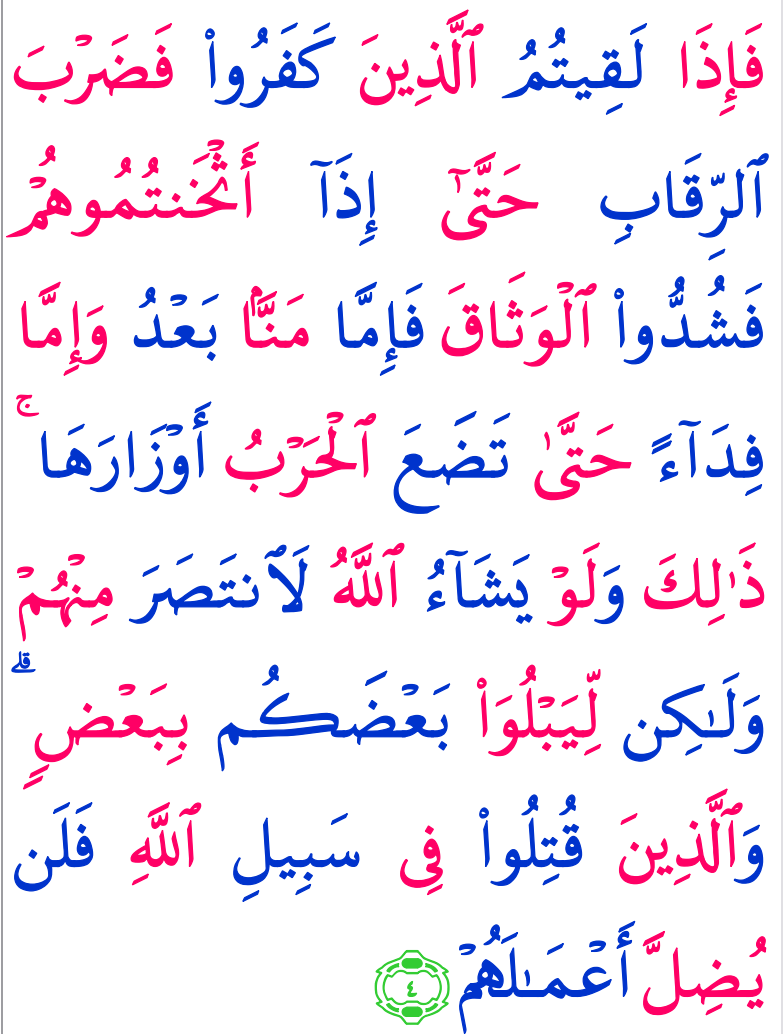 فَإِذَا لَقِيتُمُ ٱلَّذِينَ كَفَرُوا۟ فَضَرْبَ
ٱلرِّقَابِ حَتَّىٰٓ إِذَآ أَثْخَنتُمُوهُمْ
فَشُدُّوا۟ ٱلْوَثَاقَ فَإِمَّا مَنًّۢا بَعْدُ وَإِمَّا
فِدَآءً حَتَّىٰ تَضَعَ ٱلْحَرْبُ أَوْزَارَهَا ۚ
ذَٰلِكَ وَلَوْ يَشَآءُ ٱللَّهُ لَٱنتَصَرَ مِنْهُمْ
وَلَـٰكِن لِّيَبْلُوَا۟ بَعْضَكُم بِبَعْضٍ ۗ
وَٱلَّذِينَ قُتِلُوا۟ فِى سَبِيلِ ٱللَّهِ فَلَن
يُضِلَّ أَعْمَـٰلَهُمْ ٤